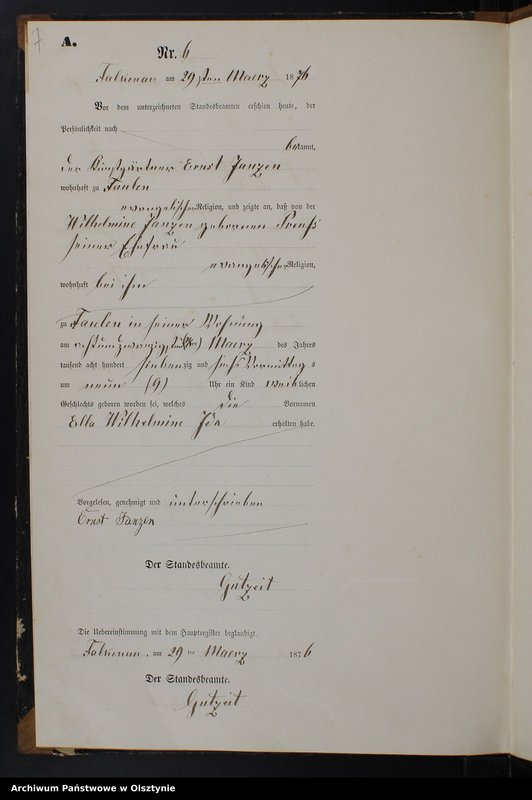 7
A.
Nr. 6
Falkenau am 29sten Maerz 1876
Vor dem unterzeichneten Standesbeamten erschien heute, der
Persönlichkeit nach
bekannt,
der Kunstgärtner Ernst Janzen
wohnhaft zu Faulen
evangelischer Religion, und zeigte an, daß von der
Wilhelmine Janzen geborenen Preuß
seiner Ehefrau
evangelischer Religion,
wohnhaft bei ihm
zu Faulen in seiner Wohnung
am achtundzwanzigsten Maerz des Jahres
tausend acht hundert siebenzig und sechs Vormittags
um neun (9) Uhr ein Kind weiblichen
Geschlechts geboren worden sei, welches die Vornamen
Ella Wilhelmine Ida erhalten habe.
Vorgelesen, genehmigt und unterschrieben
Ernst Janzen
Der Standesbeamte.
Gutzeit
Die Uebereinstimmung mit dem Hauptregister beglaubigt.
Falkenau, am 29ten Maerz 1876
Der Standesbeamte.
Gutzeit
Archiwum Państwowe w Olsztynie